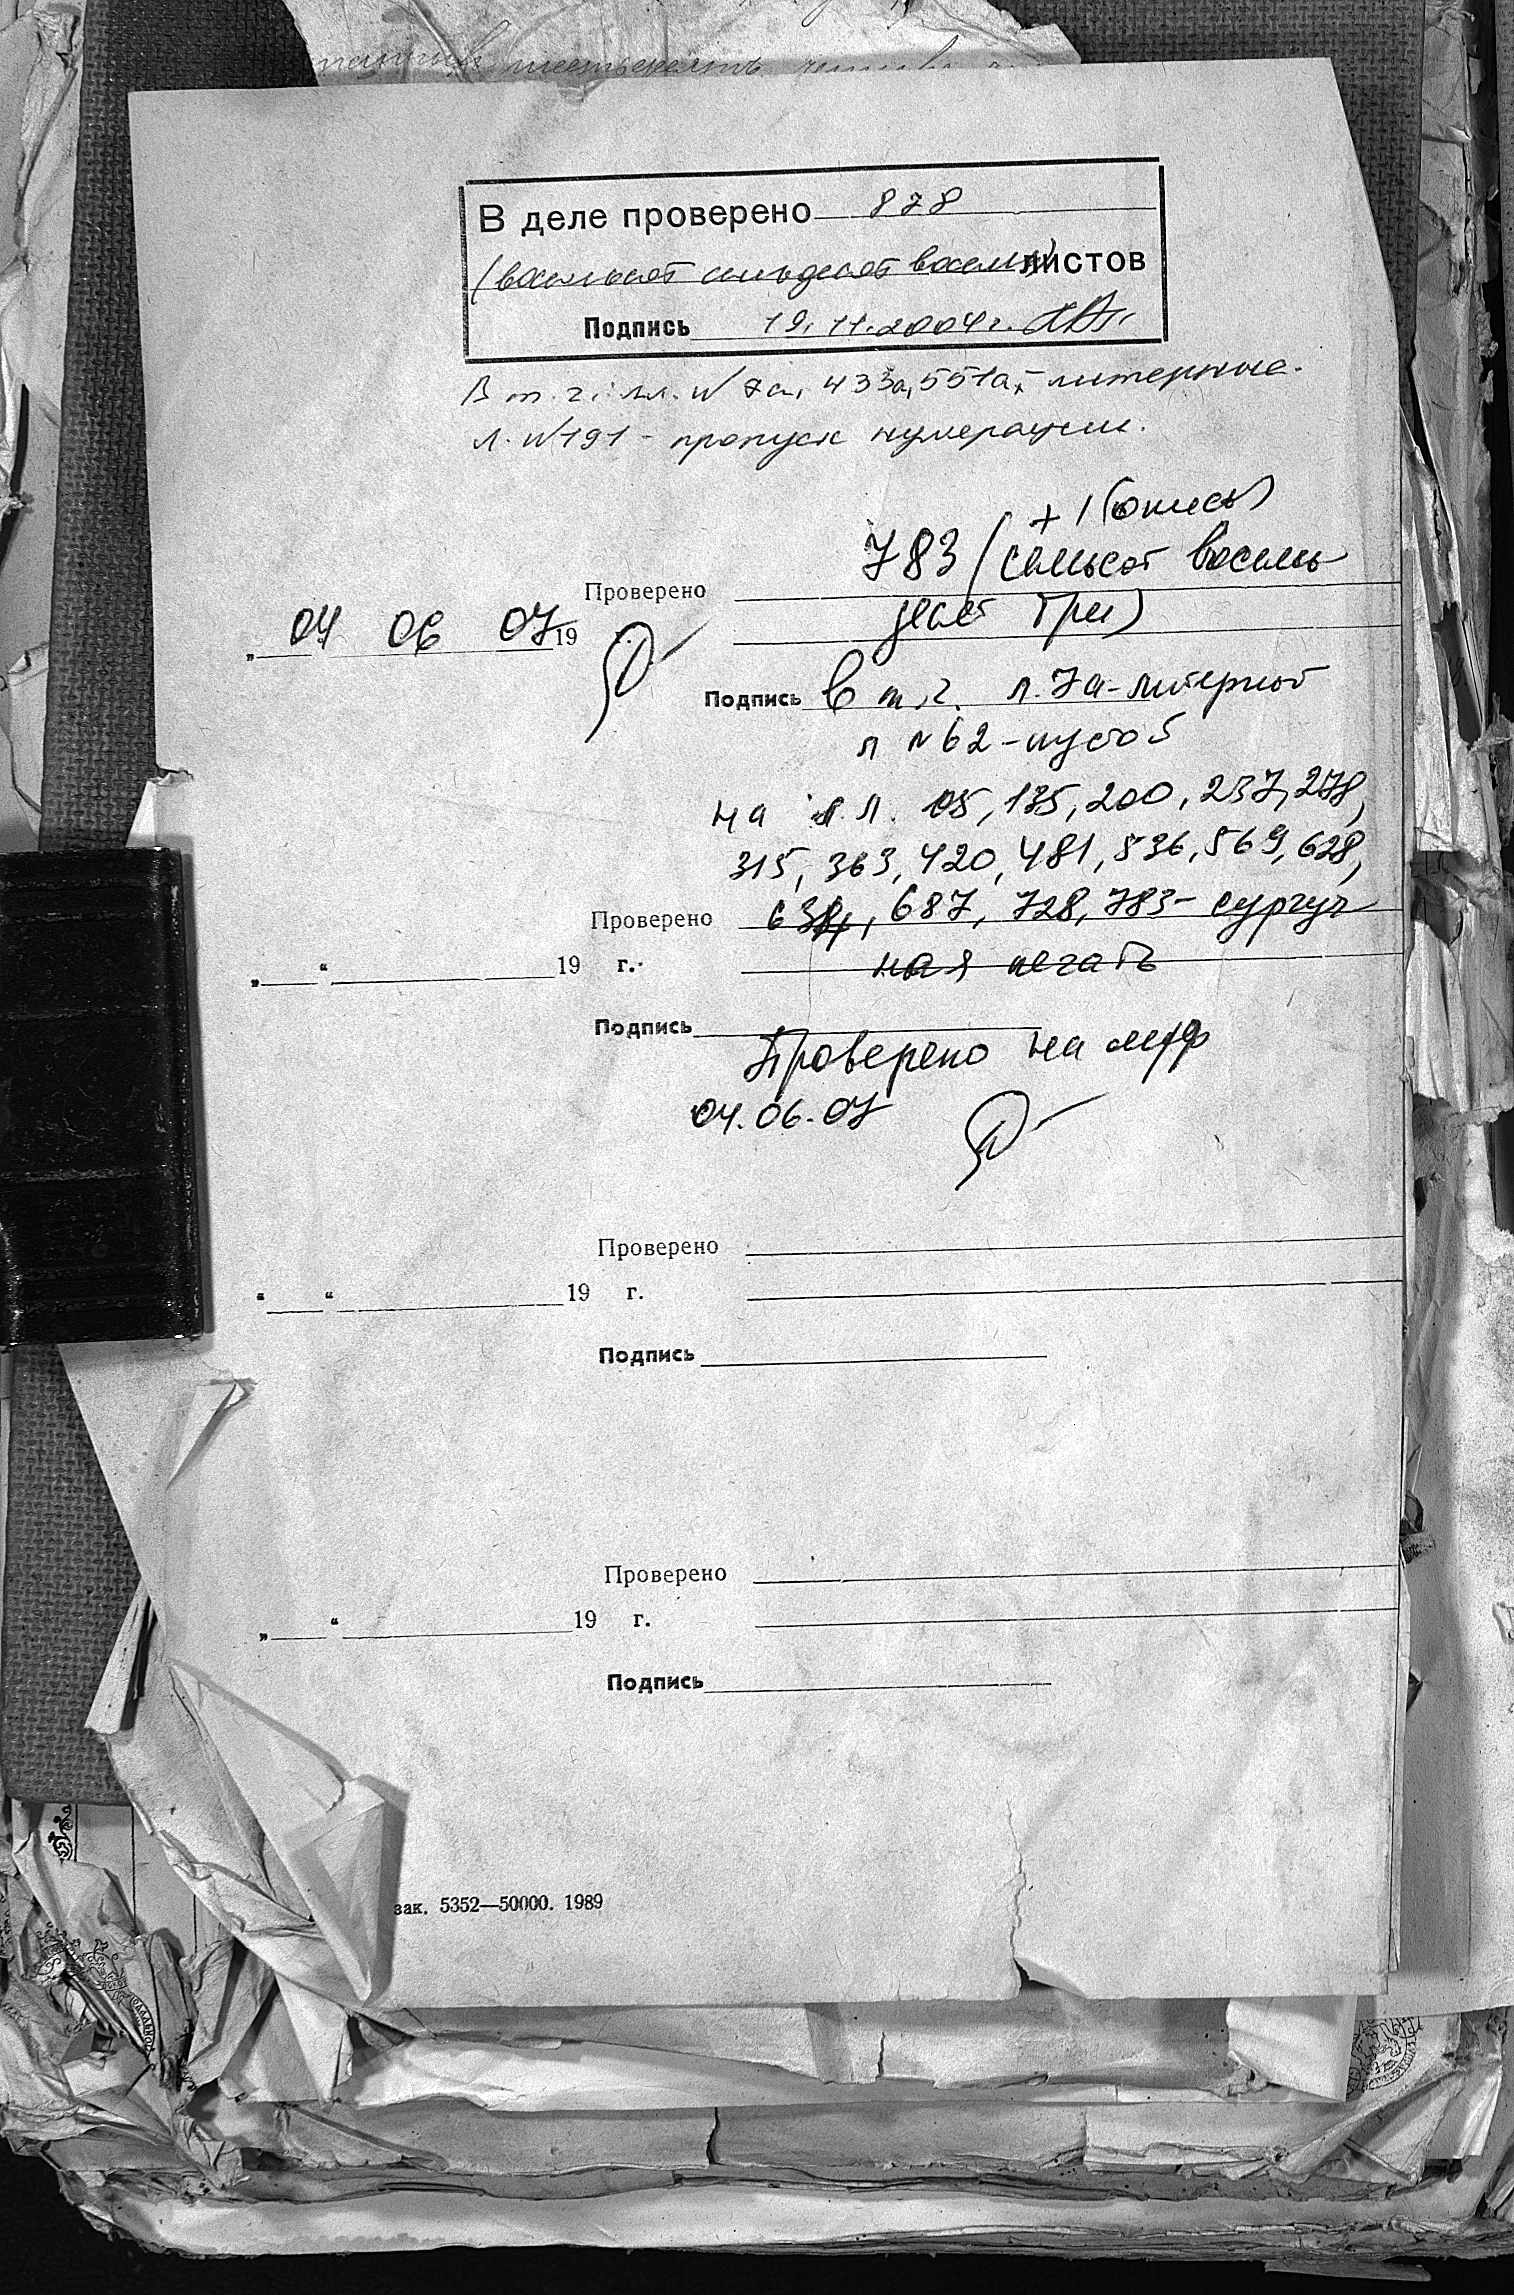 В деле проверено 878
(восемьсот семьдесят восемь) листов
Подпись 19.11.2004 г.
В т.ч. лл. N 7а, 433а, 551а, - литерные.
л. N 191 - пропуск нумерации.
+ 1 (опись)
Проверено 783 (семьсот восемь
десят три)
04 06 07 19
Подпись в т.ч. л. 7а - литерной
л N 62 - пустой
на л.л. 135, 200, 237, 278,
315, 363, 420, 481, 536, 569, 628,
Проверено 687, 728, 783 - сургуч
„ “ 19 г. ная печать
Подпись
Проверено на м/ф
04.06.07
Проверено
“ “ 19 г.
Подпись
Проверено
„ “ 19 г.
Подпись
зак. 5352—50000. 1989